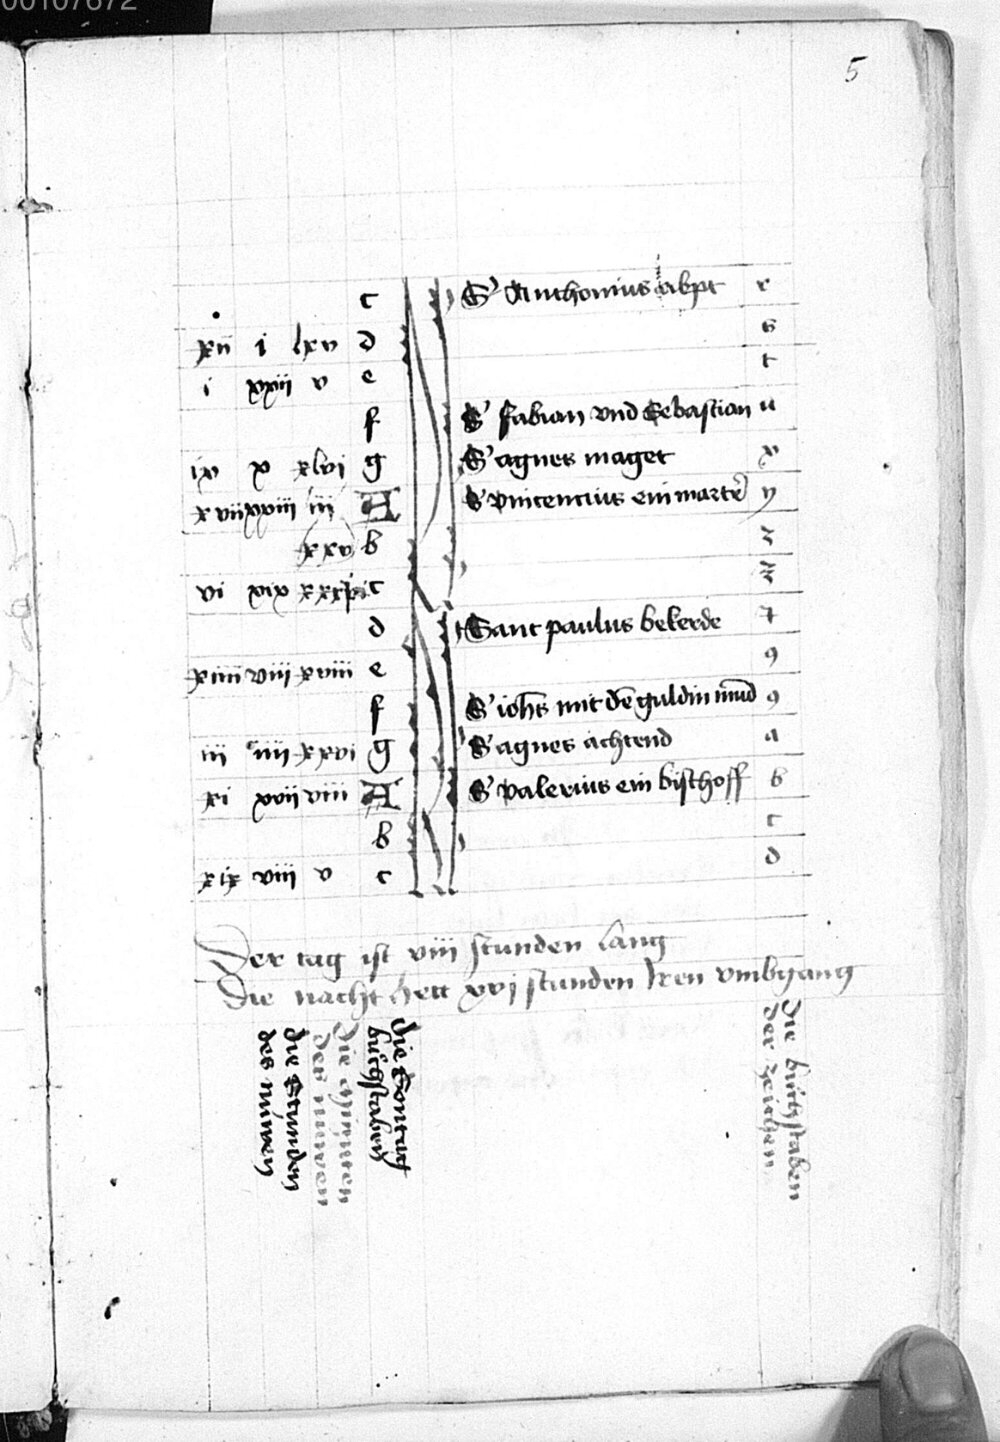 00107672
5
c S' Anthonius abpt r
xii i lxv d s
i xxii v e t
f S' fabian vnd Sebastian u
ix x xlvi g S' agnes maget x
xvii xxiii iii A S vincencius ein marter y
xxv b z
vi xix c
d Sant paulus bekerde
xiiii viii xviii e 9
f S' iohs mit de guldin mud 9
iii iiii xxvi g S' agnes achtend a
xi xvii viii A S valerius ein bischoff b
b c
xix viii v c d
Der tag ist viii stunden lang
Die nacht hett xvj stunden Iren vmbgang
die Sontag
buchstaben
Die minuten
des nuwen
die Stunden
des nuwen
die buchstaben
der zeichen